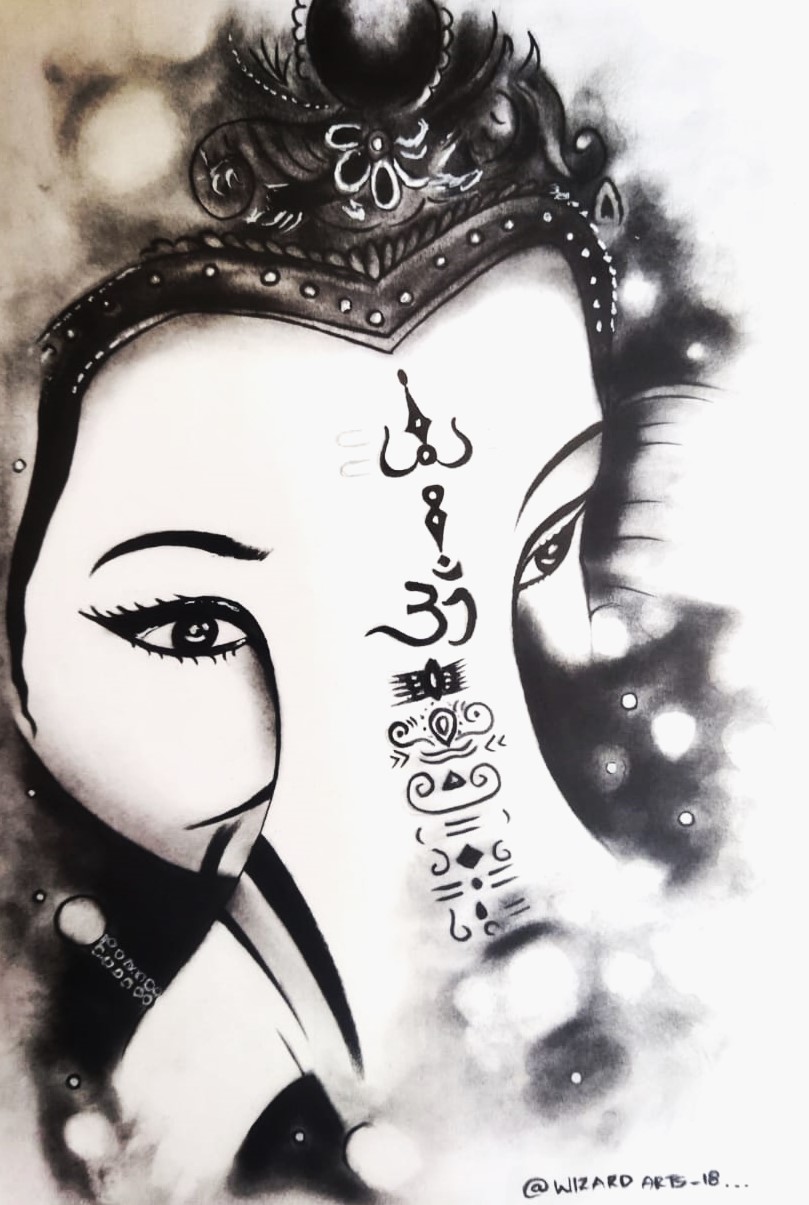 ॐ
@WIZARD ARTS-18...